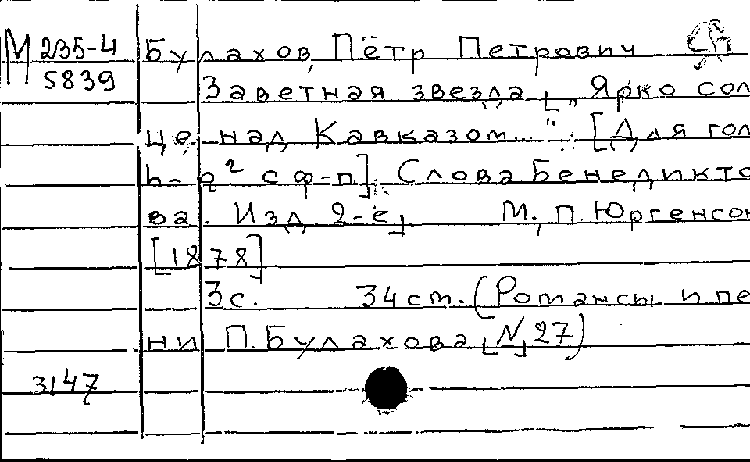 М 235-4 Булахов, Пётр Петрович
5839 Заветная звезда. „Ярко сол
це над Кавказом..." [Для гол
h- g² с ф-п]. Слова Бенедикто
ва. Изд. 2-е] М., П. Юргенсон
[1878]
3 с. 34 ст. (Романсы и пе
ни П. Булахова, [N] 27)
3147